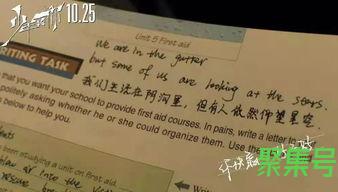 少年的你 10.25
Unit 5 First aid
We are in the gutter
but some of us are looking at the stars.
ITING TASK
我们生活在阴沟里，但有人依然仰望星空.
that you want your school to provide first aid courses. In pairs, write a letter to
politely asking whether he or she could organize them. Use the
below to help you.
been studying a unit on first aid
聚集号